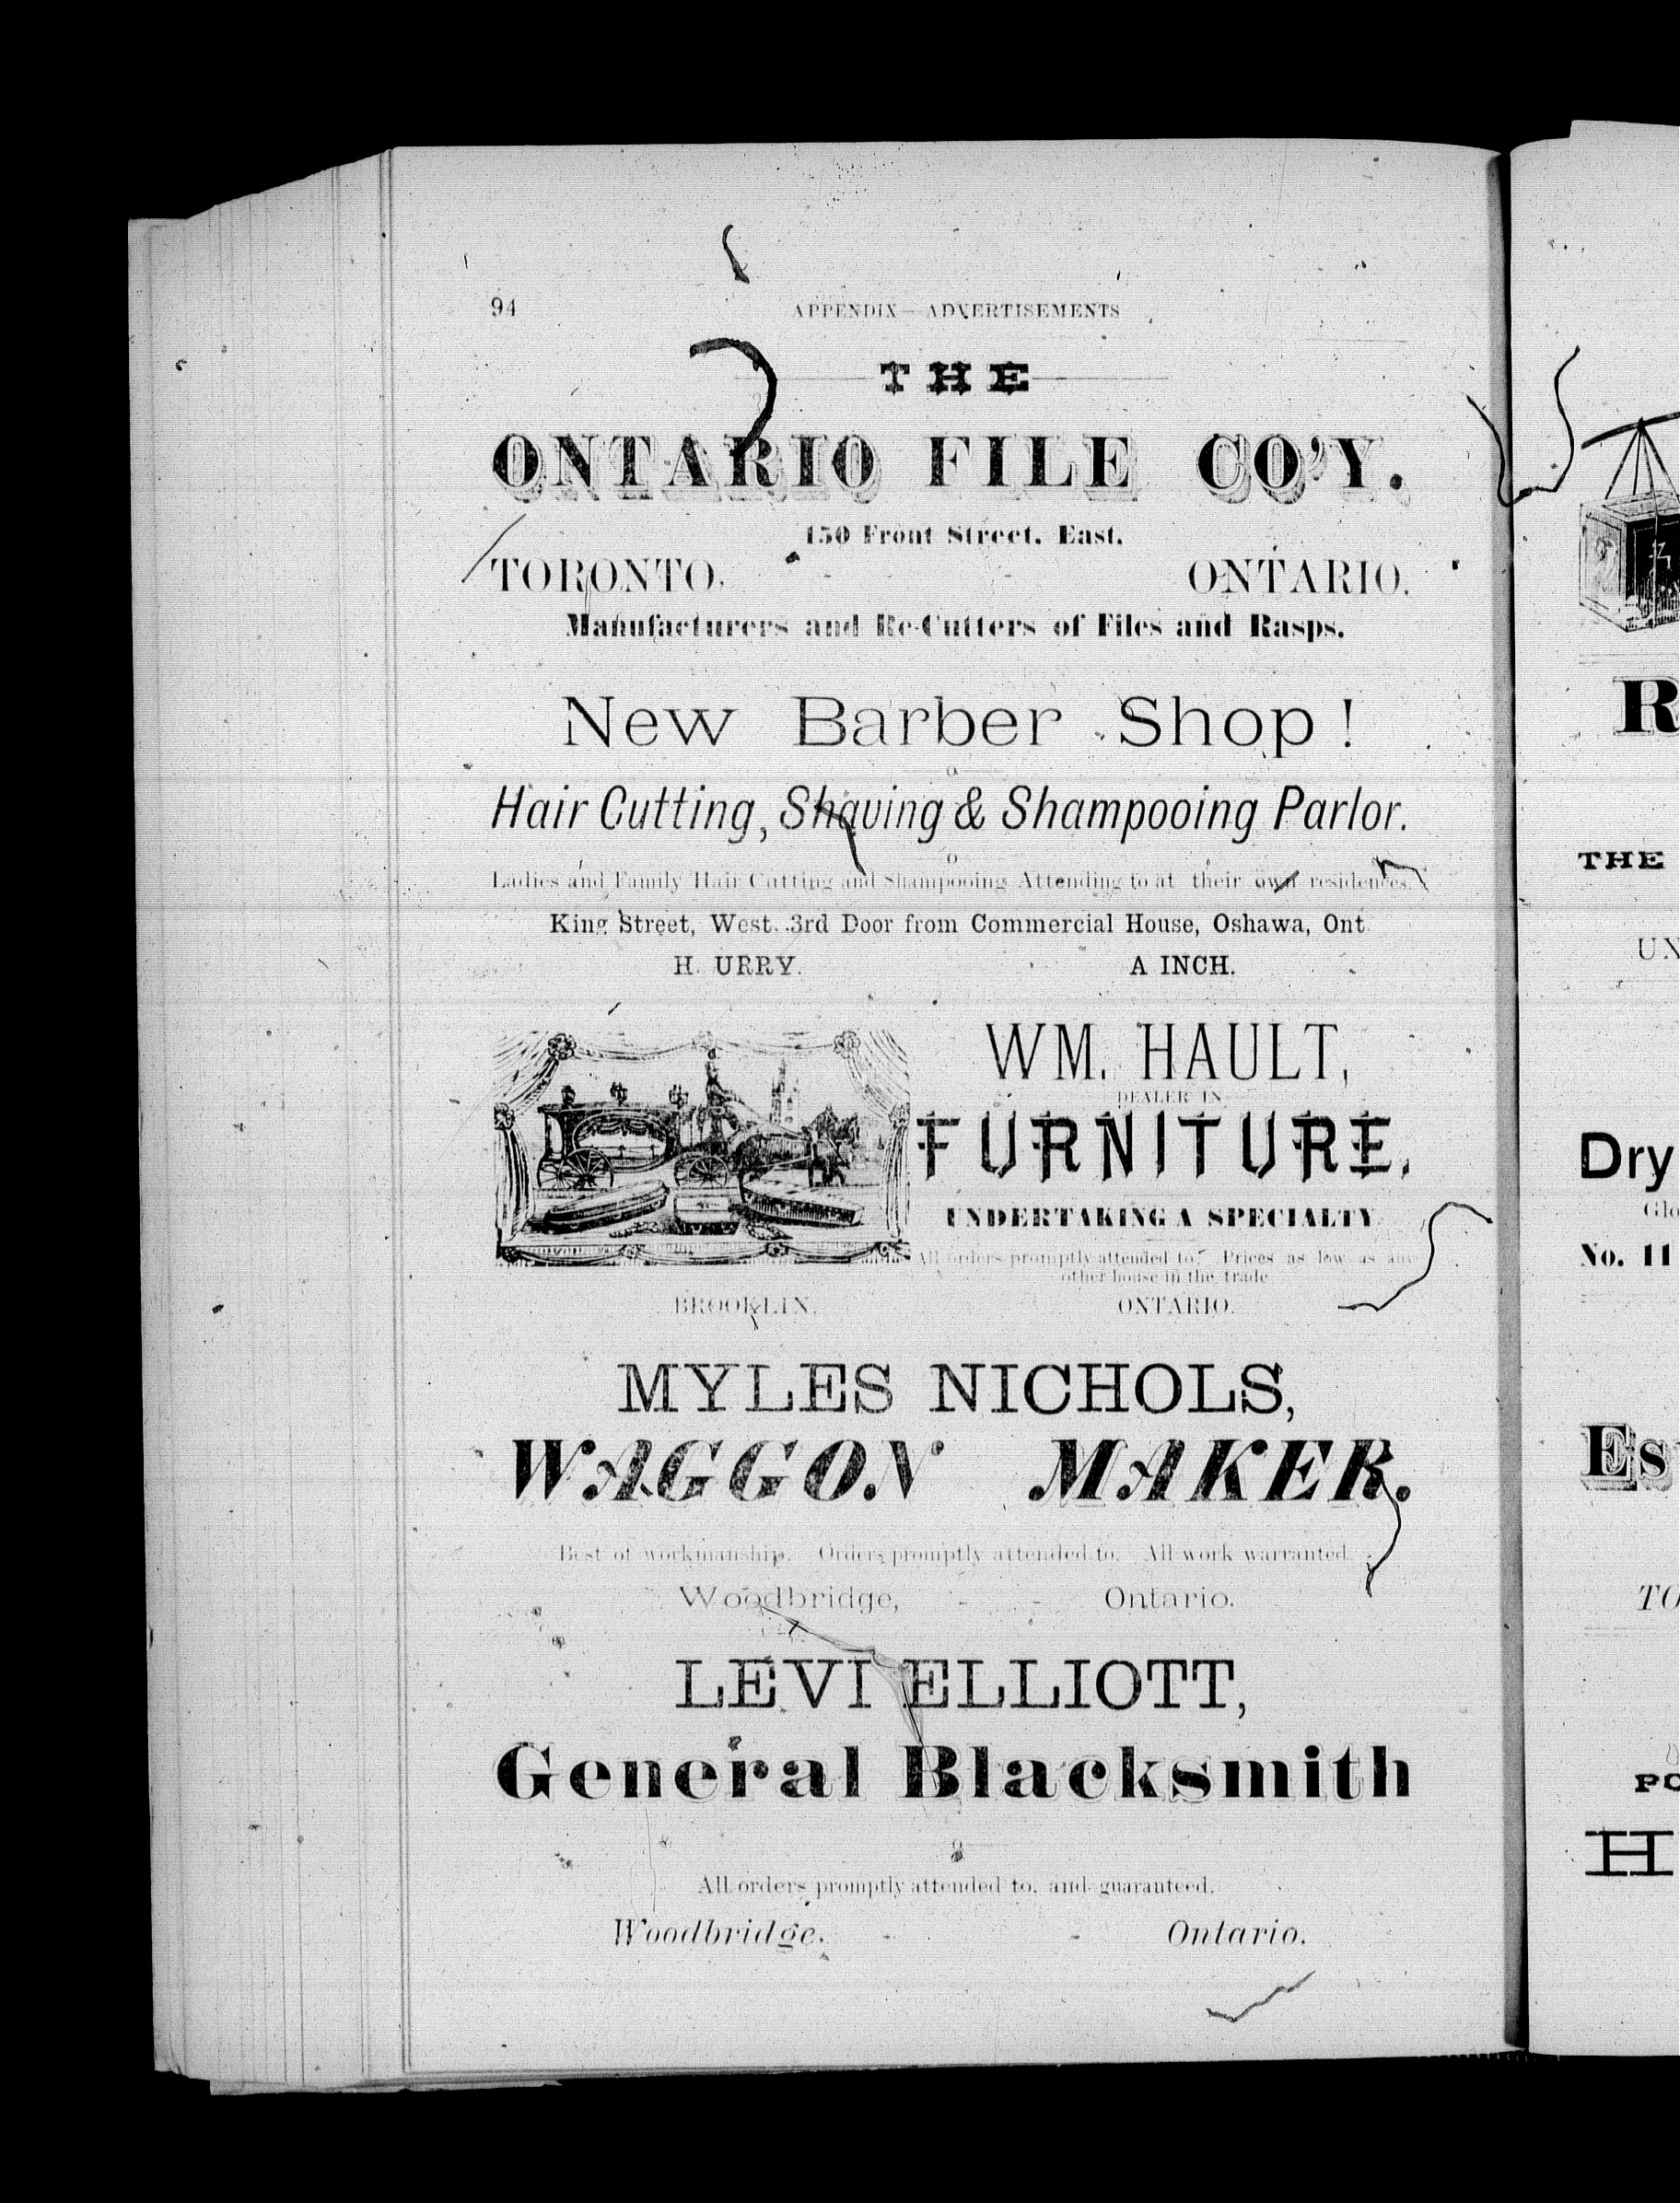 94 APPENDIX—ADVERTISEMENTS
THE
ONTARIO FILE CO'Y.
150 Front Street, East.
TORONTO, - - ONTARIO.
Manufacturers and Re-Cutters of Files and Rasps.
New Barber Shop!
Hair Cutting, Shaving & Shampooing Parlor.
Ladies and Family Hair Cutting and Shampooing Attending to at their own residences.
King Street, West. 3rd Door from Commercial House, Oshawa, Ont.
H. URRY. A INCH.
WM. HAULT,
DEALER IN
FURNITURE,
UNDERTAKING A SPECIALTY
All orders promptly attended to. Prices as low as any
other house in the trade
BROOKLIN, ONTARIO.
MYLES NICHOLS,
WAGGON MAKER.
Best of workmanship. Orders promptly attended to. All work warranted.
Woodbridge, - - Ontario.
LEVI ELLIOTT,
General Blacksmith
All orders promptly attended to, and guaranteed.
Woodbridge, - - Ontario.
R
THE
UN
Dry
Glo
No. 11
Es
TO
PO
H